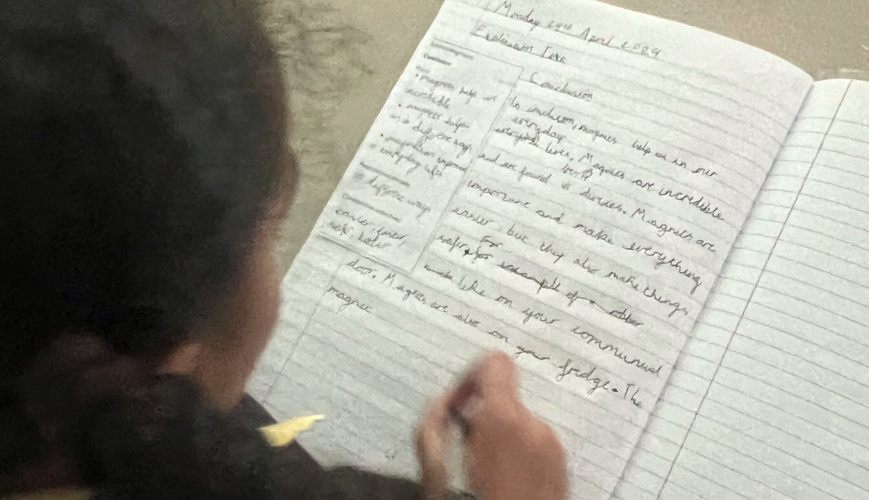 Monday 29th April 2024
Explanation Text
Conclusion
• magnets help us
incredible
• magnets help
in different ways
everyday life
different ways
easier, faster
safer, better
In conclusion, magnets help us in our
everyday
everyday lives. Magnets are incredible
and are found in devices. Magnets are
important and make everything
easier, but they also make things
safer, for example of a
For
like on your communal
door. Magnets are also on your fridge. The
magnet